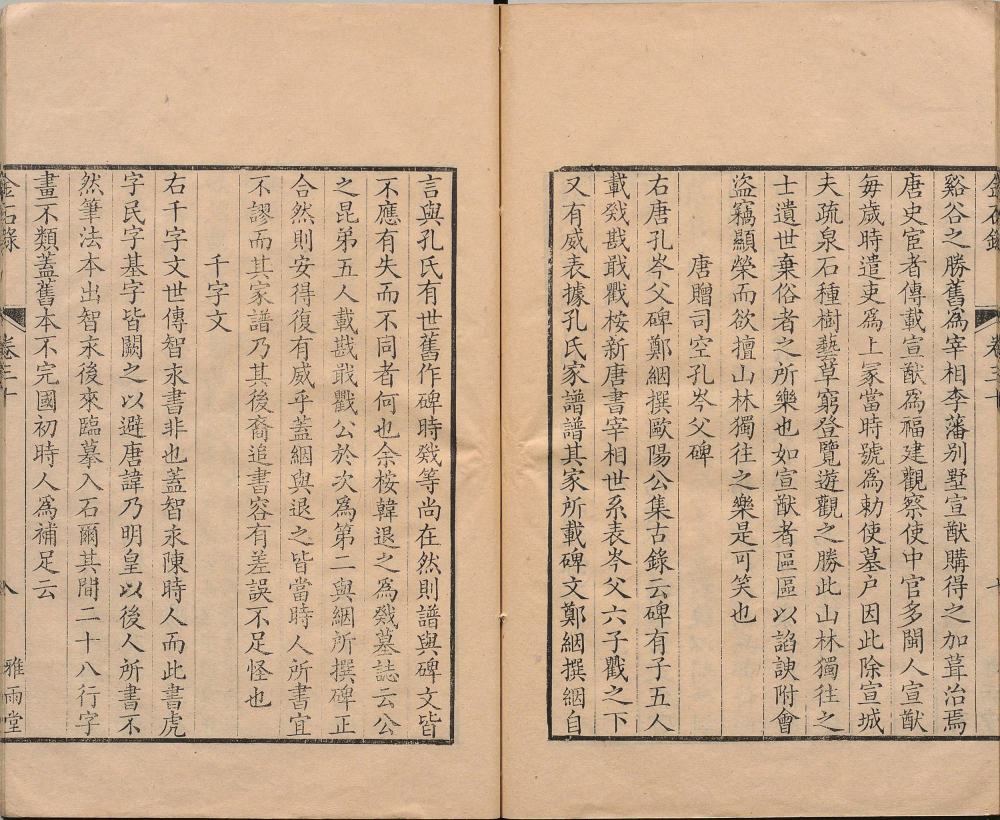 金石錄
卷三十
谿谷之勝舊爲宰相李藩别墅宣猷購得之加葺治焉
唐史宦者傳載宣猷爲福建觀察使中官多閩人宣猷
每歲時遣吏爲上冢當時號爲勅使墓户因此除宣城
夫疏泉石種樹藝草窮登覽遊觀之勝此山林獨往之
士遺世棄俗者之所樂也如宣猷者區區以諂諛附會
盜竊顯榮而欲擅山林獨往之樂是可笑也
唐贈司空孔岑父碑
右唐孔岑父碑鄭絪撰歐陽公集古錄云碑有子五人
載戣戡戢戵桉新唐書宰相世系表岑父六子戵之下
又有威表據孔氏家譜譜其家所載碑文鄭絪撰絪自
言與孔氏有世舊作碑時戣等尚在然則譜與碑文皆
不應有失而不同者何也余桉韓退之爲戣墓誌云公
之昆弟五人載戡戢戵公於次爲第二與絪所撰碑正
合然則安得復有威乎蓋絪與退之皆當時人所書宜
不謬而其家譜乃其後裔追書容有差誤不足怪也
千字文
右千字文世傳智永書非也蓋智永陳時人而此書虎
字民字基字皆闕之以避唐諱乃明皇以後人所書不
然筆法本出智永後來臨摹入石爾其間二十八行字
畫不類蓋舊本不完國初時人爲補足云
金石錄
卷三十
八
雅雨堂